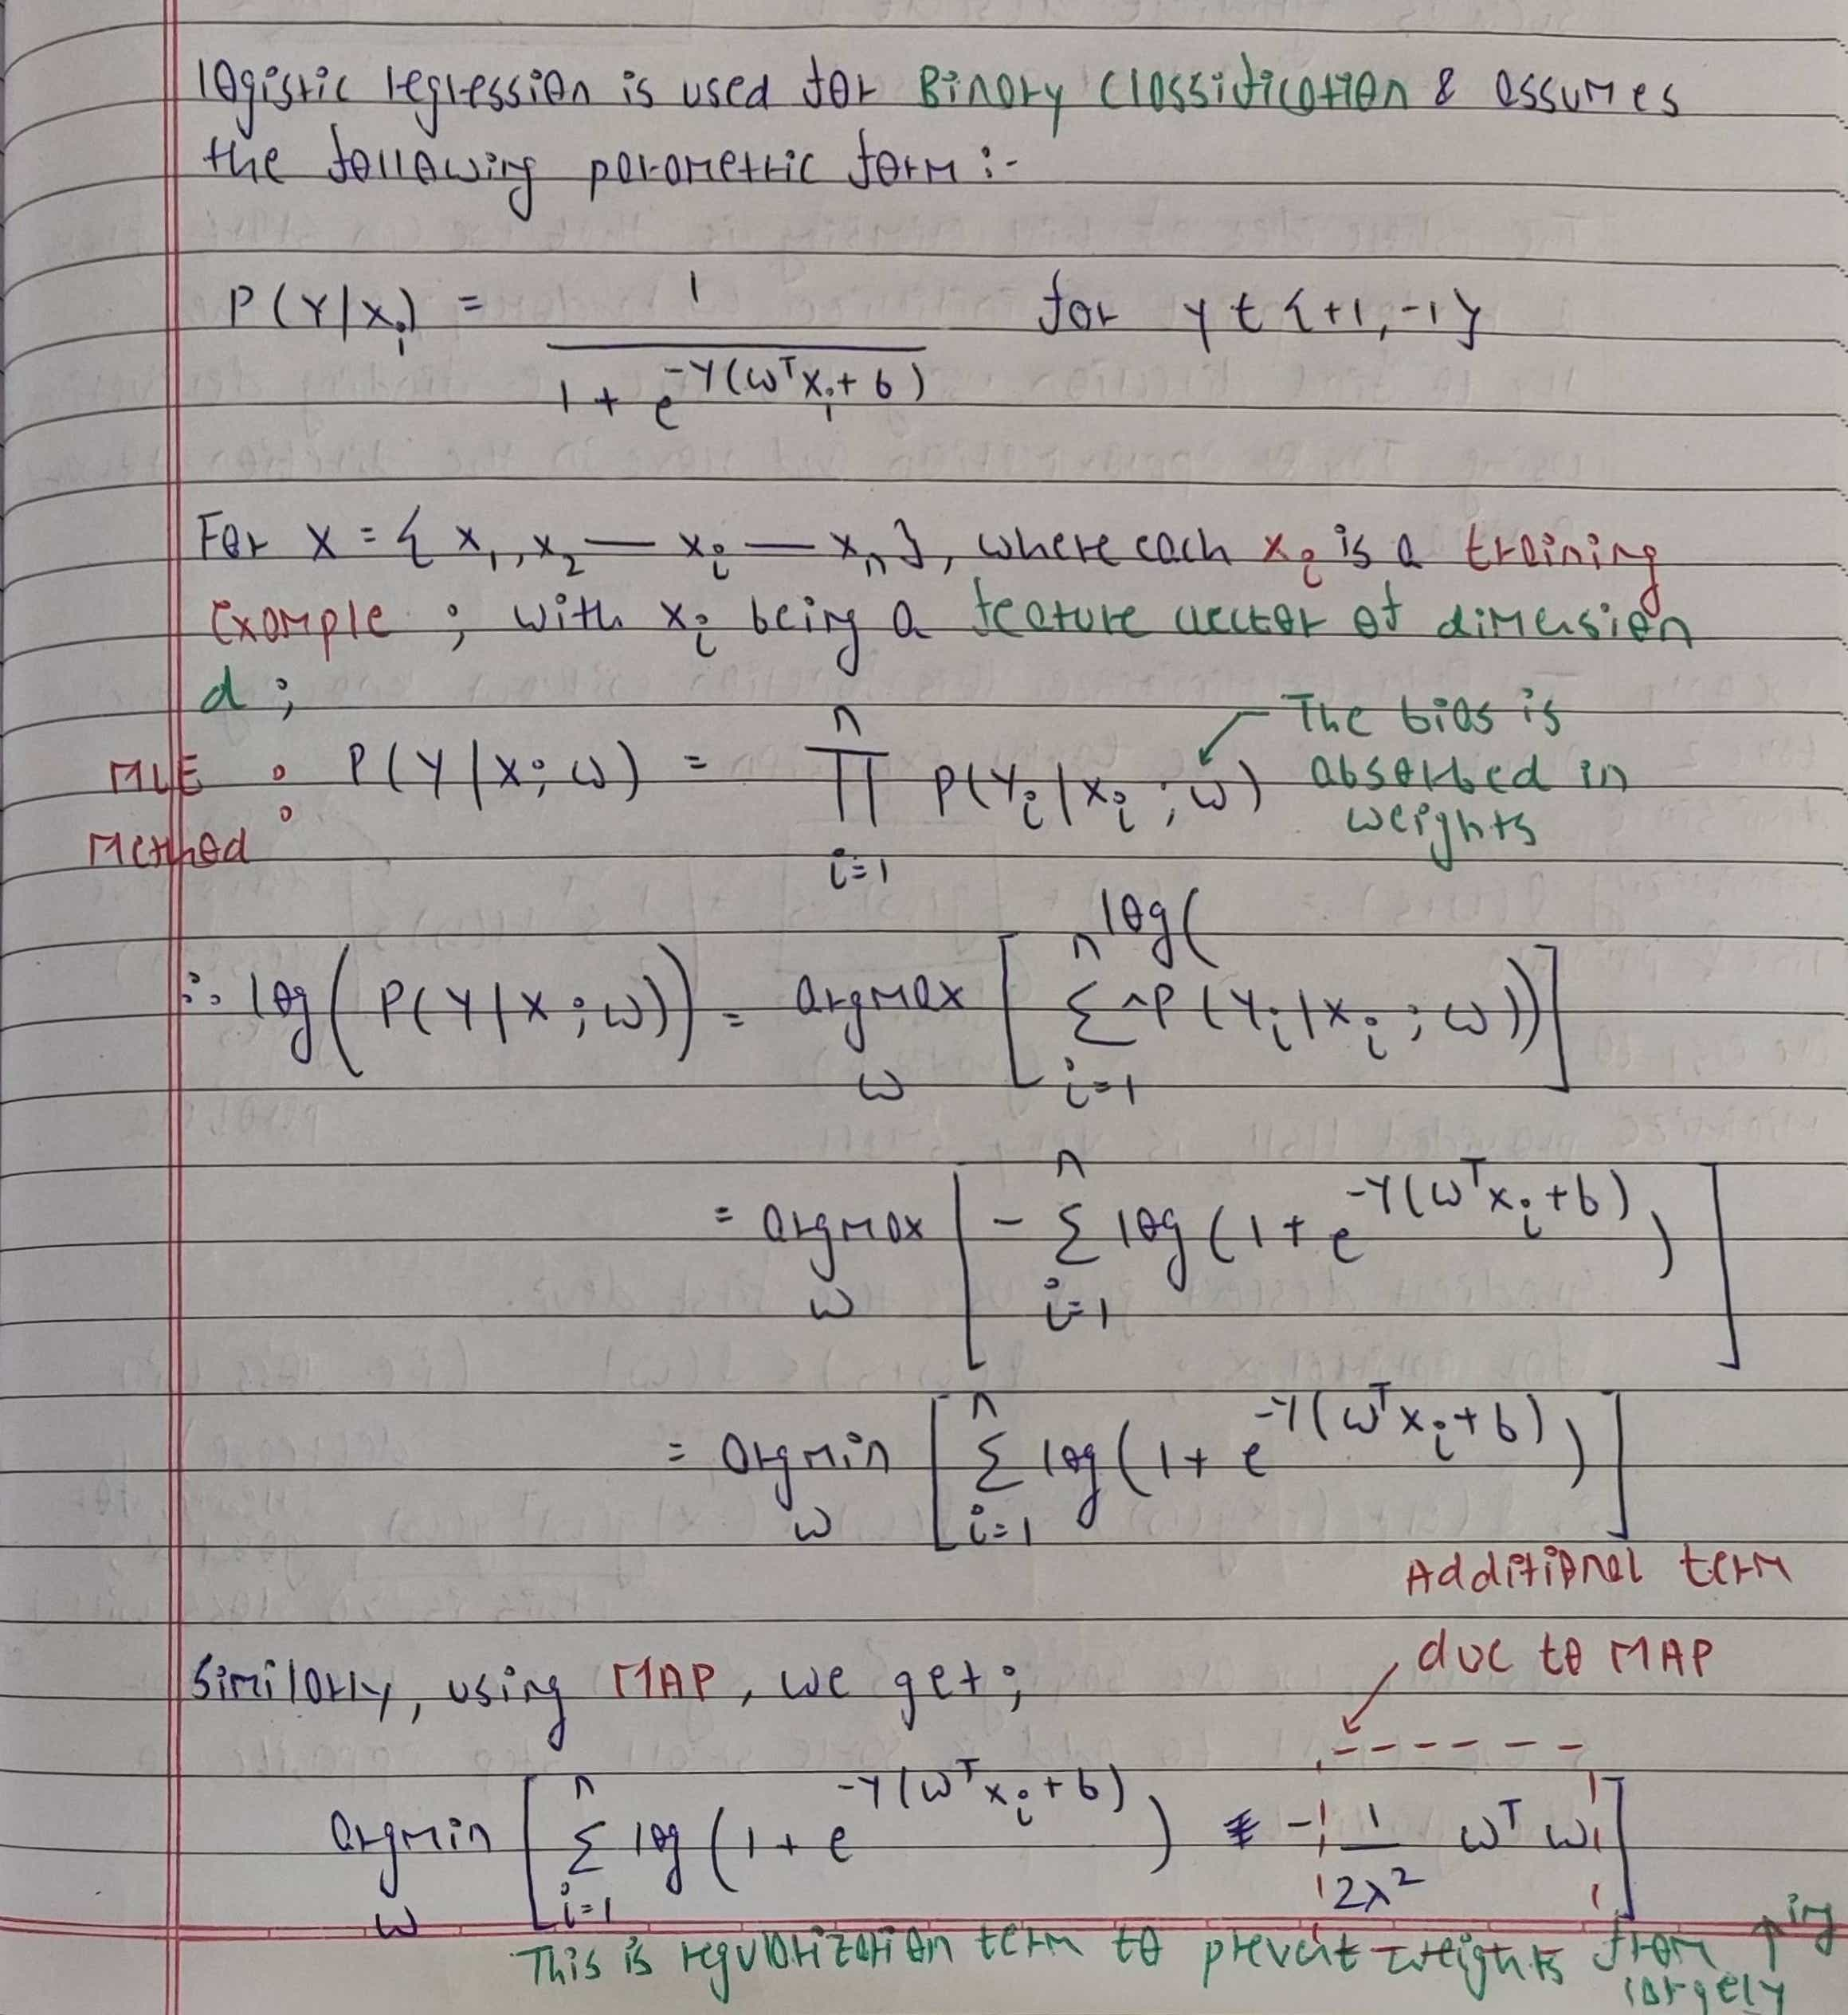 logistic regression is used for Binary Classification & assumes
the following parametric form :-
P(Y/xi) = 1 / (1 + e^(-Y(ωᵀxi + b))) for y ∈ {+1, -1}
For X = { x1, x2 — xi — xn }, where each xi is a training
Example ; with xi being a feature vector of dimension
d ;
MLE Method : P(Y/X; ω) = ∏ i=1 n P(Yi/xi ; ω)
The bias is
absorbed in
weights
∴ log( P(Y/X ; ω)) = argmax ω [ Σ i=1 n log( P(Yi/xi ; ω)) ]
= argmax ω [ - Σ i=1 n log(1 + e^(-Y(ωᵀxi + b))) ]
= argmin ω [ Σ i=1 n log(1 + e^(-Y(ωᵀxi + b))) ]
Additional term
due to MAP
Similarly, using MAP, we get ;
argmin ω [ Σ i=1 n log(1 + e^(-Y(ωᵀxi + b))) - 1/2λ² ωᵀω ]
This is regularization term to prevent weights from ↑ing
largely